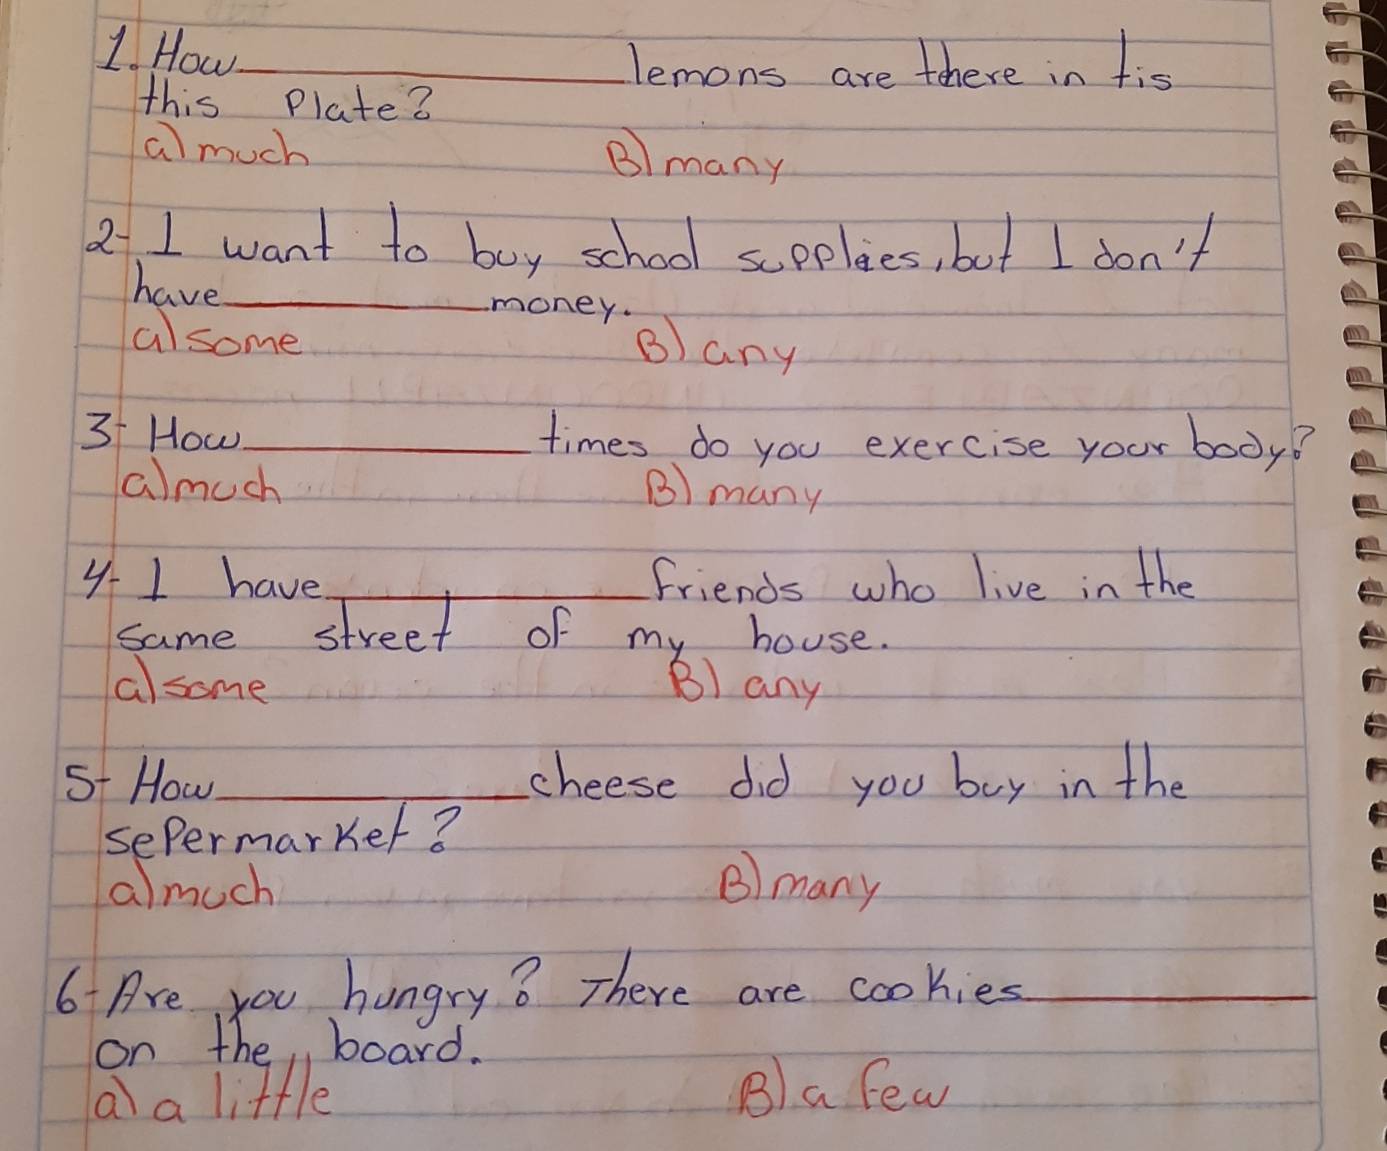 1. How__________lemons are there in tis
this Plate?
a) much B) many
2- I want to buy school supplies, but I don't
have__________money.
a) some B) any
3- How__________times do you exercise your body?
a) much B) many
4- I have__________friends who live in the
same street of my house.
a) some B) any
5- How__________cheese did you buy in the
sepermarket?
a) much B) many
6- Are you hungry? There are cookies__________
on the board.
a) a little B) a few